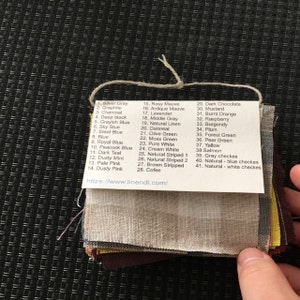 1. Silver Gray
2. Graphite
3. Charcoal
4. Deep black
5. Grayish Blue
6. Sky Blue
7. Steel Blue
8. Blue
9. Royal Blue
10. Peacock Blue
11. Dark Teal
12. Dusty Mint
13. Pale Pink
14. Dusty Pink
15. Rosy Mauve
16. Antique Mauve
17. Lavender
18. Middle Gray
19. Natural Linen
20. Oatmeal
21. Olive Green
22. Moss Green
23. Pure White
24. Cream White
25. Natural Striped 1
26. Natural Striped 2
27. Brown Stripped
28. Coffee
29. Dark Chocolate
30. Mustard
31. Burnt Orange
32. Raspberry
33. Burgundy
34. Plum
35. Forest Green
36. Pear Green
37. Yellow
38. Salmon
39. Gray checkes
40. Natural - blue checkes
41. Natural - white checkes
https://www.linendi.com/